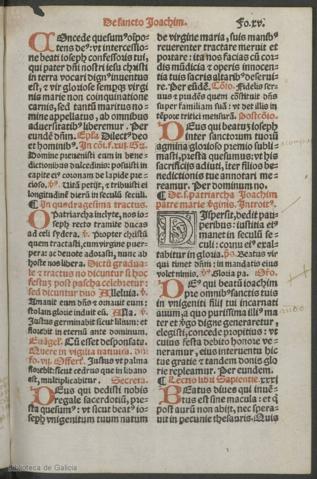 De sancto Joachim.
Fo.xv.
Concede quesumus oīpo-
tens deus: vt intercessio-
ne beati ioseph confessoris tui,
qui pater dñi nostri iesu christi
in terra vocari dignus inuentus
est, ⁊ vir gloriose semper virgi
nis marie non coinquinatione
carnis, sed tantū maritus no-
mine appellatus, ab omnibus
aduersitatibus liberemur. Per
eundē dñm. Epla Dilectus deo
et hominibus.
Domine preuenisti eum in bene-
dictionibus dulcedinis: posuisti in
capite eius coronam de lapide pre-
cioso. v. Uitā petijt, ⁊ tribuisti ei
longitudinē dierū in seculū seculi.
In quadragesima tractus.
O patriarcha inclyte, nos io-
seph recto tramite ducas
ad celi sydera. v. propter christū
quem tractasti, cum virgine puer-
pera: ac denote adorasti, nunc ab
hoste nos libera.
le ⁊ tractus no dicuntur si hoc
festum post pascha celebretur:
sed dicuntur duo Alleluia. v.
Amauit eum dñs ⁊ ornauit eum:
stolam glorie induit eū. Alla. v.
Justus germinabit sicut lilium: et
florebit in eternū ante dominum.
Euāgel. Cū esset desponsata.
Quere in vigilia natiuita. dñi
fo. vii. Offert. Justus vt palma
florebit: sicut cedrus que in libano
est, multiplicabitur. Secreta.
Deus qui dedisti nobis
regale sacerdotiū, pre-
sta quesumus: vt sicut beatus io-
seph vnigenitum tuum natum
de virgine maria, suis manibus
reuerenter tractare meruit et
portare: ita nos facias cū cor-
dis mūdicia ⁊ operis innocen-
tia tuis sacris altaribus deserui-
re. Per eūdē. Cōio. Fidelis ser-
uus ⁊ prudēs quem constituit dñs
super familiam suā: vt det illis in
tēpore tritici mensurā. Postcōio.
Deus qui beatū ioseph
inter sanctorum tuorū
agmina glorioso premio subli-
masti, presta quesumus: vt his
sacrificijs adiuti, iter filios bene
dictionis tue annotari me-
reamur. Per dominum no.
De. s. patriarcha Joachim
patre marie virginis. Introitus.
Dispersit, dedit pau-
peribus: iustitia eius
manet in seculū se-
culi: cornu eius exal-
tabitur in gloria. ps. Beatus vir
qui timet dñm: in mandatis eius
volet nimis. v. Gloria pa. Oro.
Deus qui beatū ioachim
pre omnibus sanctis tuis
in vnigeniti filij tui incarnati
suam ⁊ quo purissima illius ma-
ter et virgo digne generaretur,
elegisti: concede propitius: vt
cuius festa debito honore ve-
neramur, eius interuentu hic
tue gratie ⁊ tandem donis glo
rie repleamur. Per eundem.
Lectio libri Sapientie. xxxj
Beatus diues qui inuen-
tus est sine macula: et q
post aurū non abijt, nec spera-
uit in pecunie thesauris. Quis
Biblioteca de Galicia